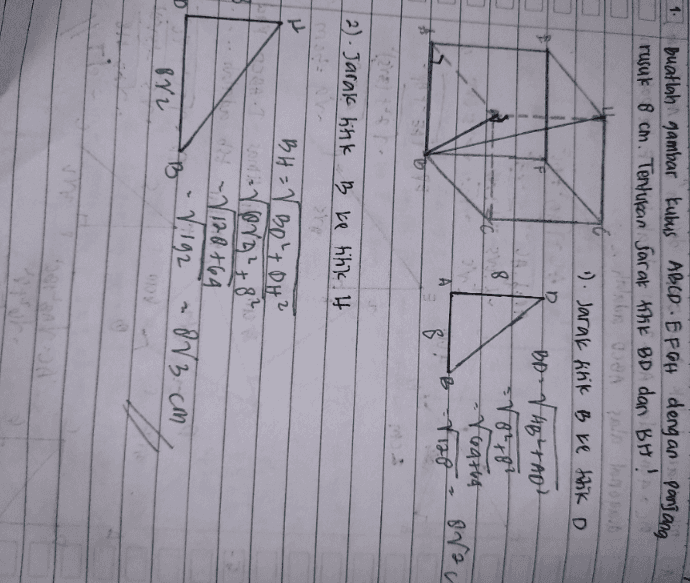 1. Buatlah gambar kubus ABCD.EFGH dengan panjang
rusuk 8 cm. Tentukan Jarak titik BD dan BH!
E
H
F
G
A
D
B
C
1). Jarak titik B ke titik D
8
D
A
8
B
BD = √AB² + AD²
= √8² + 8²
= √64 + 64
= √128 = 8√2 c
2). Jarak titik B ke titik H
H
D
8√2
B
BH = √BD² + DH²
= √8√2² + 8²
= √128 + 64
= √192 = 8√3 cm